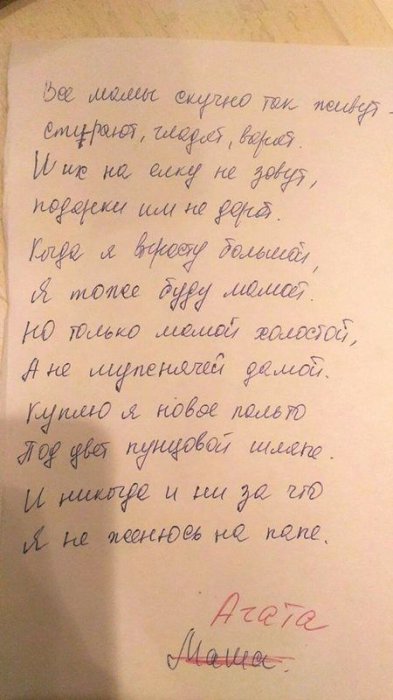 Все мамы скучно так живут -
стирают, гладят, варят.
И их на елку не зовут,
подарки им не дарят.
Когда я вырасту большой,
Я тоже буду мамой.
Но только мамой холостой,
А не мупенячей дамой.
Куплю я новое пальто
Под цвет пунцовой шляпе.
И никогда и ни за что
Я не женюсь на папе.
Агата
Маша.